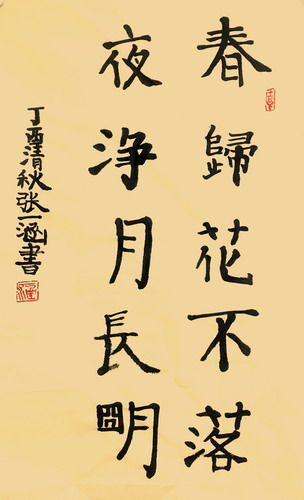 春歸花不落
夜淨月長朙
丁酉清秋张一涵書